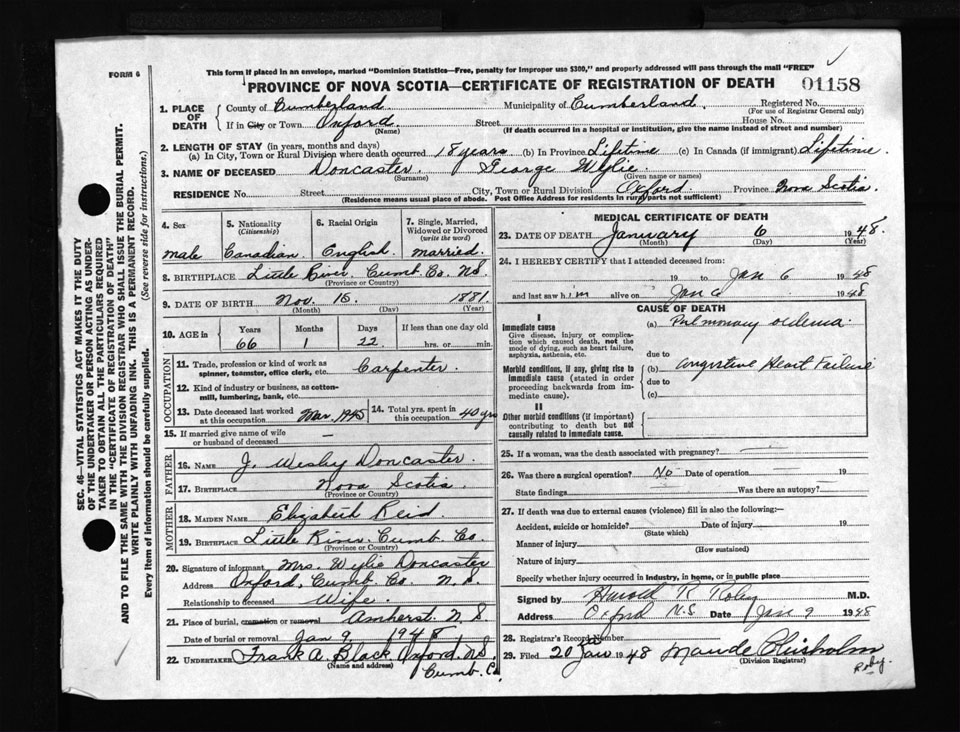 FORM 6
This form if placed in an envelope, marked "Dominion Statistics—Free, penalty for improper use $300," and properly addressed will pass through the mail "FREE"
PROVINCE OF NOVA SCOTIA—CERTIFICATE OF REGISTRATION OF DEATH 01158
1. PLACE OF DEATH County of Cumberland Municipality of Cumberland. Registered No.
(For use of Registrar General only)
If in City or Town Oxford Street House No.
(Name) (If death occurred in a hospital or institution, give the name instead of street and number)
2. LENGTH OF STAY (in years, months and days)
(a) In City, Town or Rural Division where death occurred 18 years (b) In Province Lifetime (c) In Canada (if immigrant) Lifetime
3. NAME OF DECEASED Doncaster George Wylie
(Surname) (Given name or names)
RESIDENCE No. Street City, Town or Rural Division Oxford Province Nova Scotia.
(Residence means usual place of abode. Post Office Address for residents in rural parts not sufficient)
4. Sex 5. Nationality (Citizenship) 6. Racial Origin 7. Single, Married, Widowed or Divorced (write the word)
male Canadian English married.
8. BIRTHPLACE Little River Cumb. Co. NS.
(Province or Country)
9. DATE OF BIRTH Nov. 15 1881.
(Month) (Day) (Year)
10. AGE in Years Months Days If less than one day old
66 1 22 hrs. or min.
OCCUPATION
11. Trade, profession or kind of work as spinner, teamster, office clerk, etc. Carpenter.
12. Kind of industry or business, as cotton-mill, lumbering, bank, etc.
13. Date deceased last worked at this occupation Mar. 1945 14. Total yrs. spent in this occupation 40 yrs
15. If married give name of wife or husband of deceased —
FATHER
16. NAME J. Wesley Doncaster.
17. BIRTHPLACE Nova Scotia
(Province or Country)
MOTHER
18. MAIDEN NAME Elizabeth Reid
19. BIRTHPLACE Little River. Cumb. Co.
(Province or Country)
20. Signature of informant Mrs. Wylie Doncaster
Address Oxford, Cumb. Co. N.S.
Relationship to deceased Wife.
21. Place of burial, cremation or removal Amherst. N.S
Date of burial or removal Jan 9, 1948
22. UNDERTAKER Frank A. Black Oxford. NS.
(Name and address) Cumb. Co
MEDICAL CERTIFICATE OF DEATH
23. DATE OF DEATH January 6 1948.
(Month) (Day) (Year)
24. I HEREBY CERTIFY that I attended deceased from:
19 to Jan 6 1948
and last saw him alive on Jan 6 1948
CAUSE OF DEATH
I
Immediate cause
Give disease, injury or complication which caused death, not the mode of dying, such as heart failure, asphyxia, asthenia, etc.
(a) Pulmonary oedema.
due to
Morbid conditions, if any, giving rise to immediate cause (stated in order proceeding backwards from immediate cause).
(b) Congestive Heart Failure
due to
(c)
II
Other morbid conditions (if important) contributing to death but not causally related to immediate cause.
25. If a woman, was the death associated with pregnancy? —
26. Was there a surgical operation? No Date of operation 19
State findings Was there an autopsy?
27. If death was due to external causes (violence) fill in also the following:—
Accident, suicide or homicide? Date of injury 19
(State which)
Manner of injury
(How sustained)
Nature of injury
Specify whether injury occurred in industry, in home, or in public place
Signed by Harold R Roby M.D.
Address Oxford N.S Date Jan 9 1948
28. Registrar's Record Number
29. Filed 20 Jan 1948 Maude Chisholm
(Division Registrar)
Roby.
SEC. 46—VITAL STATISTICS ACT MAKES IT THE DUTY
OF THE UNDERTAKER OR PERSON ACTING AS UNDER-
TAKER TO OBTAIN ALL THE PARTICULARS REQUIRED
IN THE "CERTIFICATE OF REGISTRATION OF DEATH"
AND TO FILE THE SAME WITH THE DIVISION REGISTRAR WHO SHALL ISSUE THE BURIAL PERMIT.
WRITE PLAINLY WITH UNFADING INK. THIS IS A PERMANENT RECORD.
Every item of information should be carefully supplied. (See reverse side for instructions.)